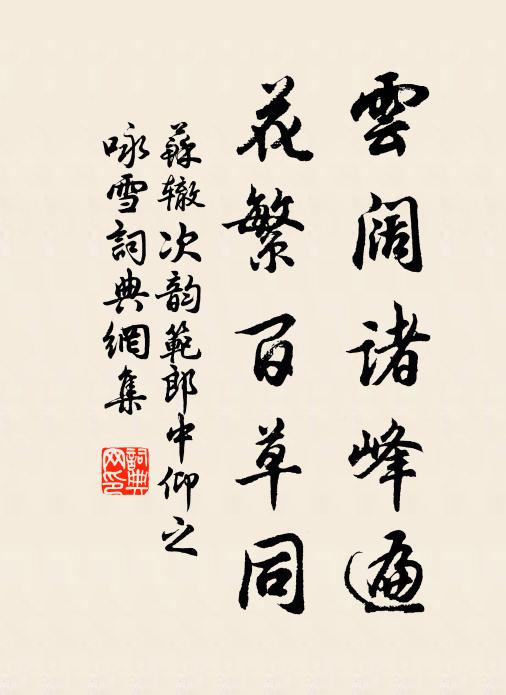 雲阔諸峰遍
花繁百草同
蘇辙次韵範郎中仰之
咏雪詞典網集
詞典
网印